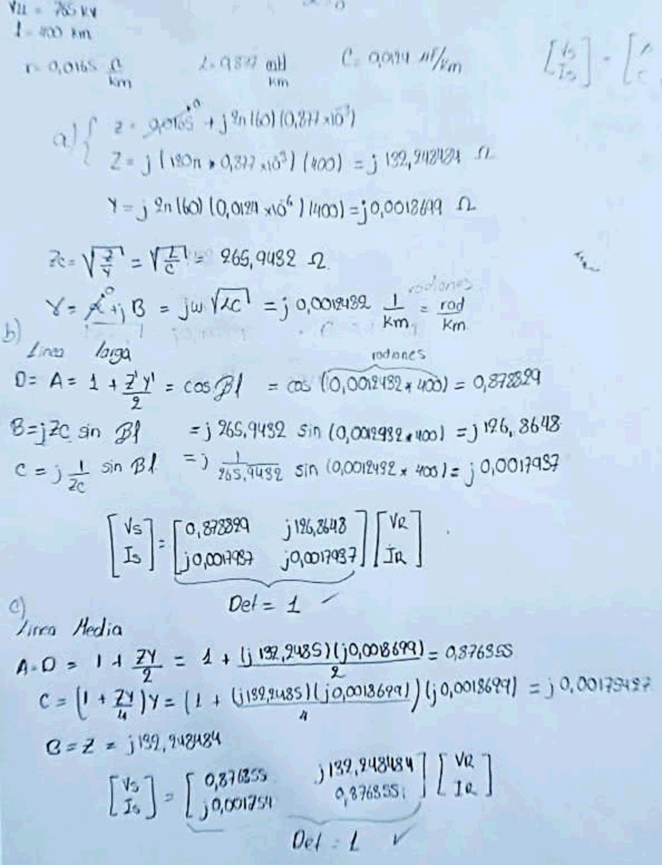 VLL = 765 kV
l = 400 km
r = 0,0165 Ω/km L = 0,877 mH/km C = 0,0124 μF/km [Vs Is] = [A C
a) { z = 0,0165 →0 + j 2π(60)(0,877 x10³)
Z = j (120π * 0,877 x10³) (400) = j 132,248484 Ω
Y = j 2π(60) (0,0124 x10⁶) (400) = j 0,0018699 Ω
Zc = √(Z/Y) = √(L/C) = 265,9432 Ω
γ = α →0 + jB = jω √LC = j 0,0012432 1/km = rad/km
radianes
b)
Línea larga
radianes
D = A = 1 + Z'Y'/2 = cos Bl = cos (0,0012432 * 400) = 0,878829
B = jZc sin Bl = j 265,9432 sin (0,0012432 * 400) = j 126,8648
C = j 1/Zc sin Bl = j 1/265,9432 sin (0,0012432 x 400) = j 0,0017937
[Vs Is] = [0,878829 j126,8648 j0,0017937 j0,0017937] [VR IR]
Det = 1 ✓
c)
Línea Media
A = D = 1 + ZY/2 = 1 + (j 132,2485)(j0,0018699)/2 = 0,876355
C = (1 + ZY/4) Y = (1 + (j132,2485)(j0,0018699)/4) (j0,0018699) = j 0,00175427
B = Z = j132,248484
[Vs Is] = [0,876355 j132,248484 j0,001754 0,876355] [VR IR]
Det = 1 ✓